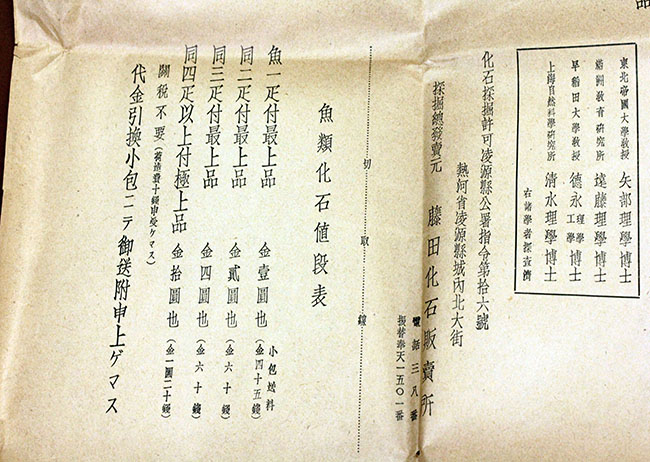 品
東北帝國大學教授 矢部理學博士
滿洲教育研究所 遠藤理學博士
早稻田大學教授 德永理學工學博士
上海自然科學研究所 清水理學博士
右諸學者探査濟
化石採掘許可凌源縣公署指令第拾六號
熱河省凌源縣城內北大街
採掘總發賣元 藤田化石販賣所
電話三八番
振替奉天一五〇一番
切取線
魚類化石値段表
小包送料
魚一疋付最上品 金壹圓也 (金四十五錢)
同二疋付最上品 金貳圓也 (金六十錢)
同三疋付最上品 金四圓也 (金六十錢)
同四疋以上付極上品 金拾圓也 (金一圓二十錢)
關稅不要 (荷造費十錢申受ケマス)
代金引換小包ニテ御送附申上ゲマス